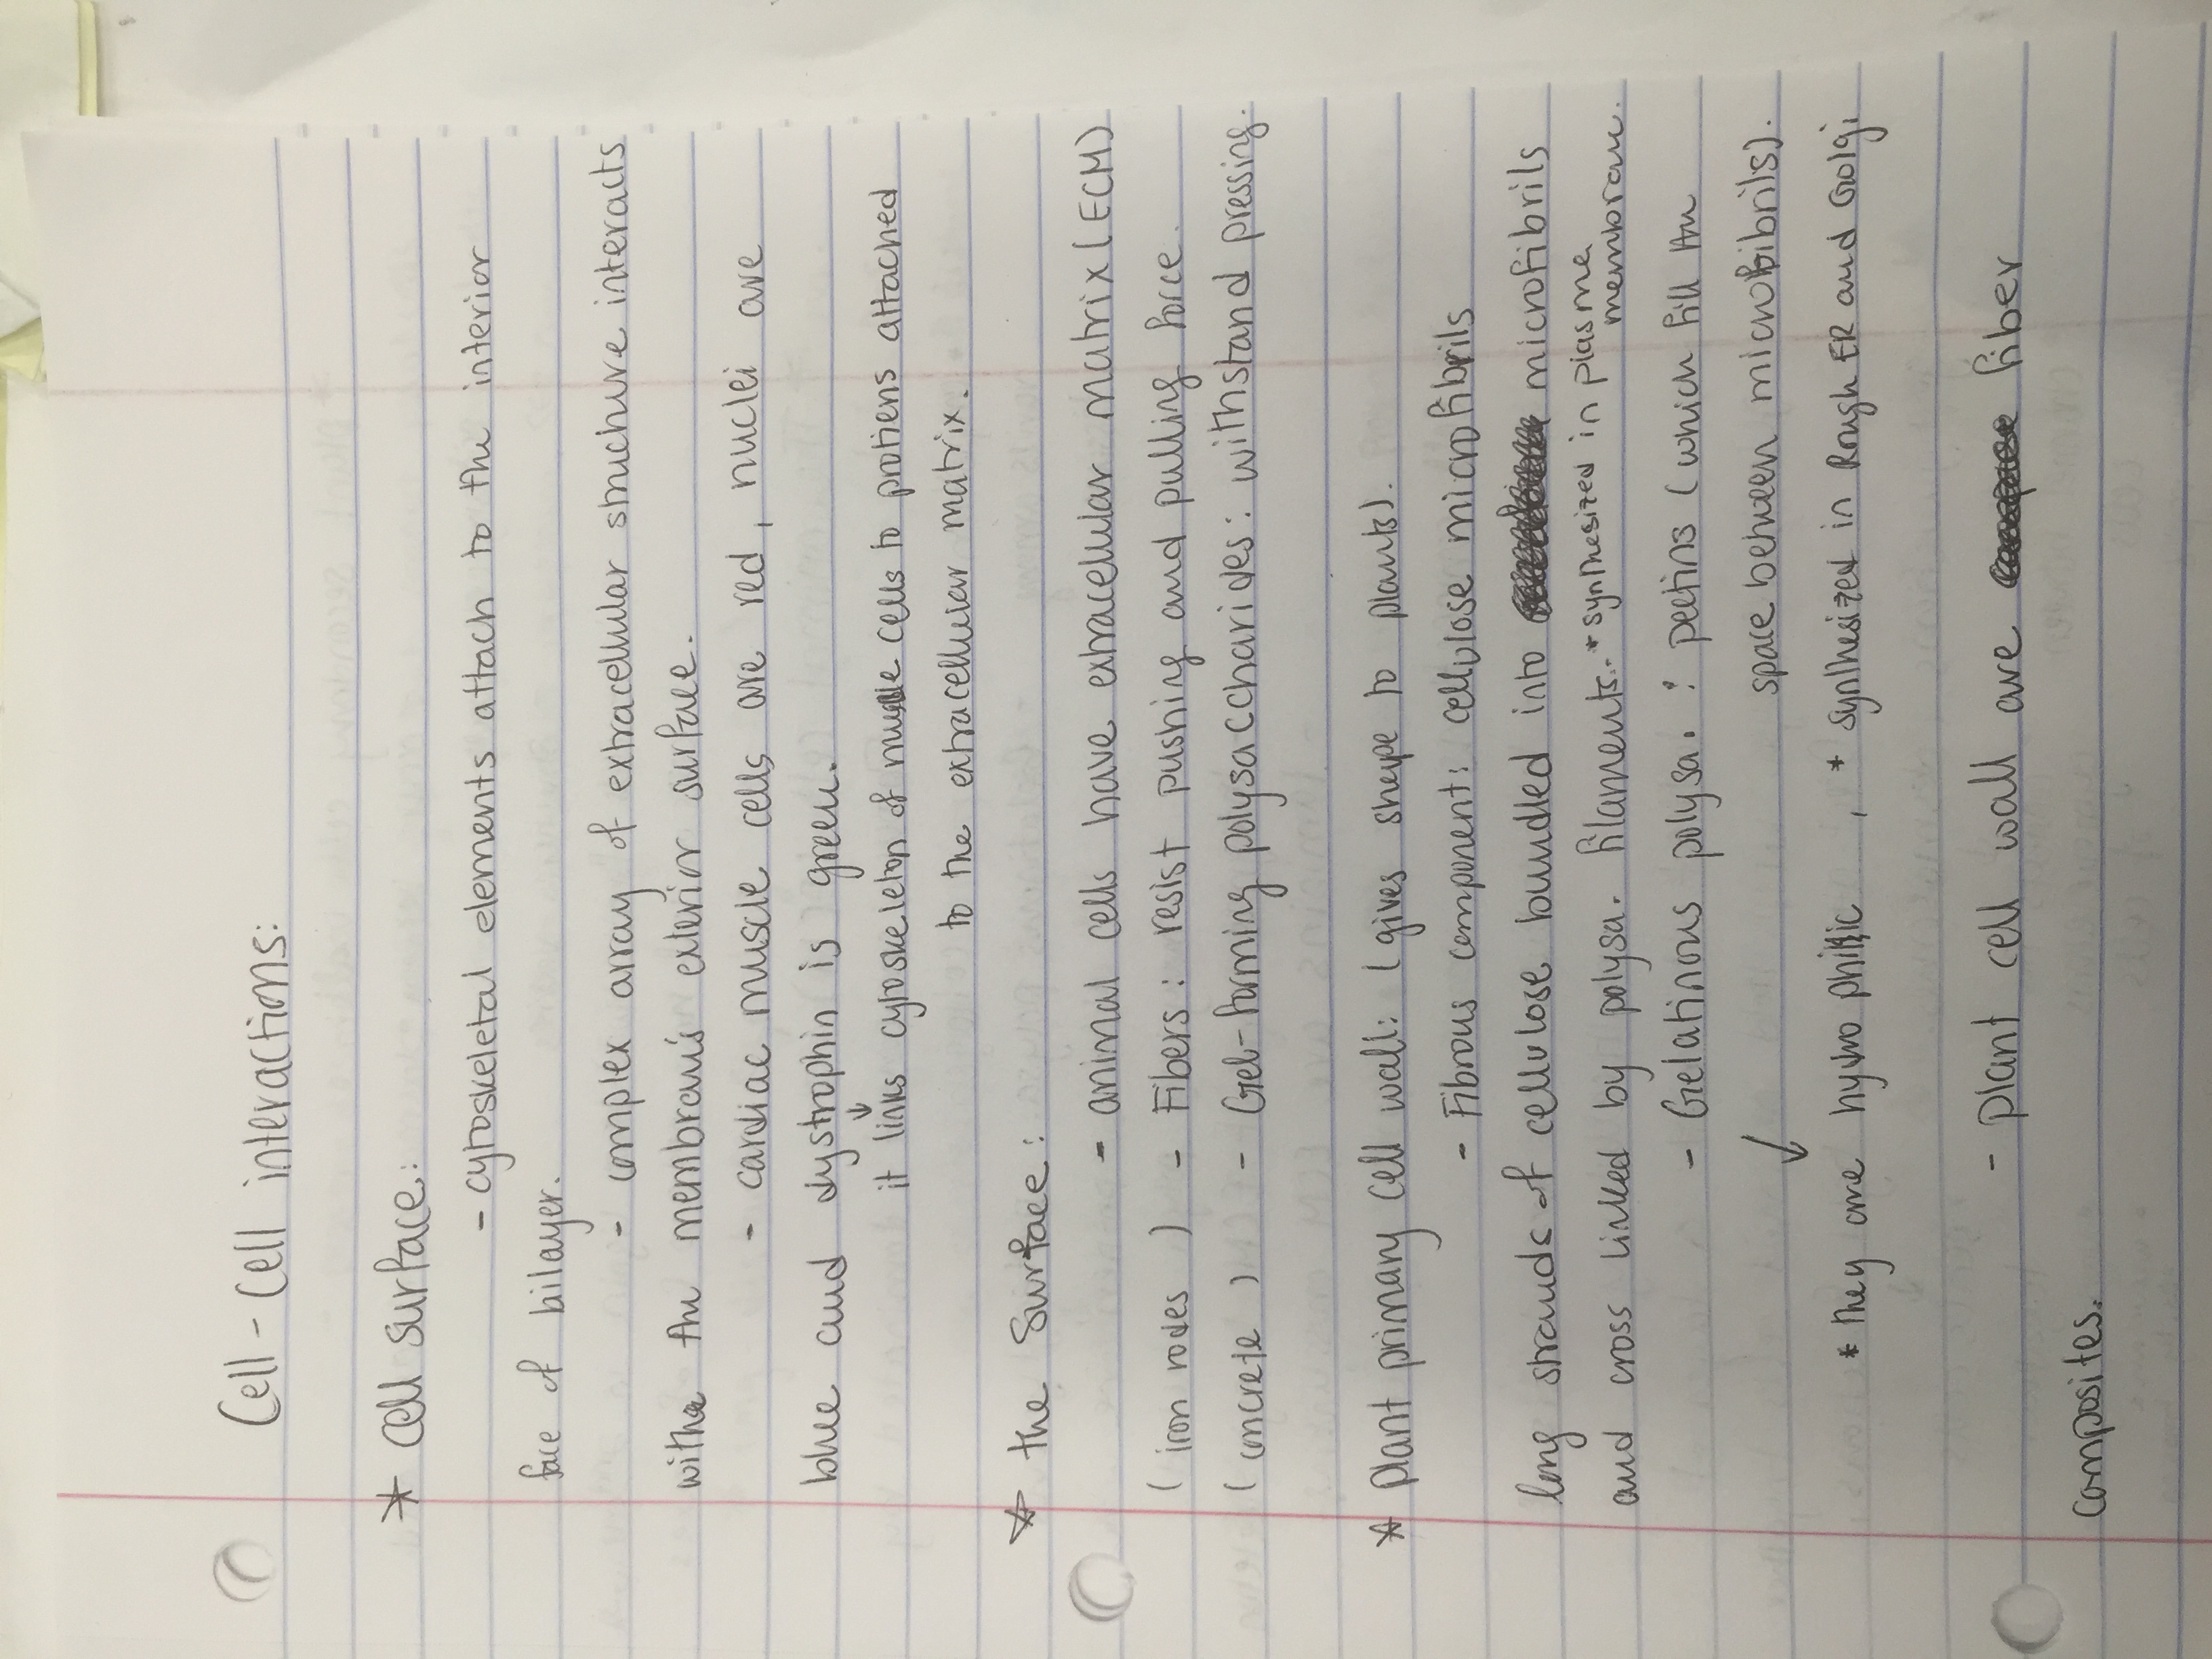 Cell - Cell interactions:
* Cell surface:
- cytoskeletal elements attach to the interior
face of bilayer.
- complex array of extracellular structure interacts
with the membrane's exterior surface.
- cardiac muscle cells are red, nuclei are
blue and dystrophin is green.
↓
it links cytoskeleton of muscle cells to protiens attached
to the extracellular matrix.
* the surface:
- animal cells have extracellular matrix (ECM)
(iron rodes) - Fibers: resist pushing and pulling force.
(concrete) - Gel-forming polysaccharides: withstand pressing.
* Plant primary cell wall: (gives shape to plants).
- Fibrous component: cellulose microfibrils
long strands of cellulose bundled into microfibrils
and cross linked by polysa. filaments. * synthesized in plasme
membrane.
- Gelatinous polysa. : pectins (which fill the
space between microfibrils).
↓
* they are hydrophilic , * synthesized in Rough ER and Golgi
- plant cell wall are fiber
composites.